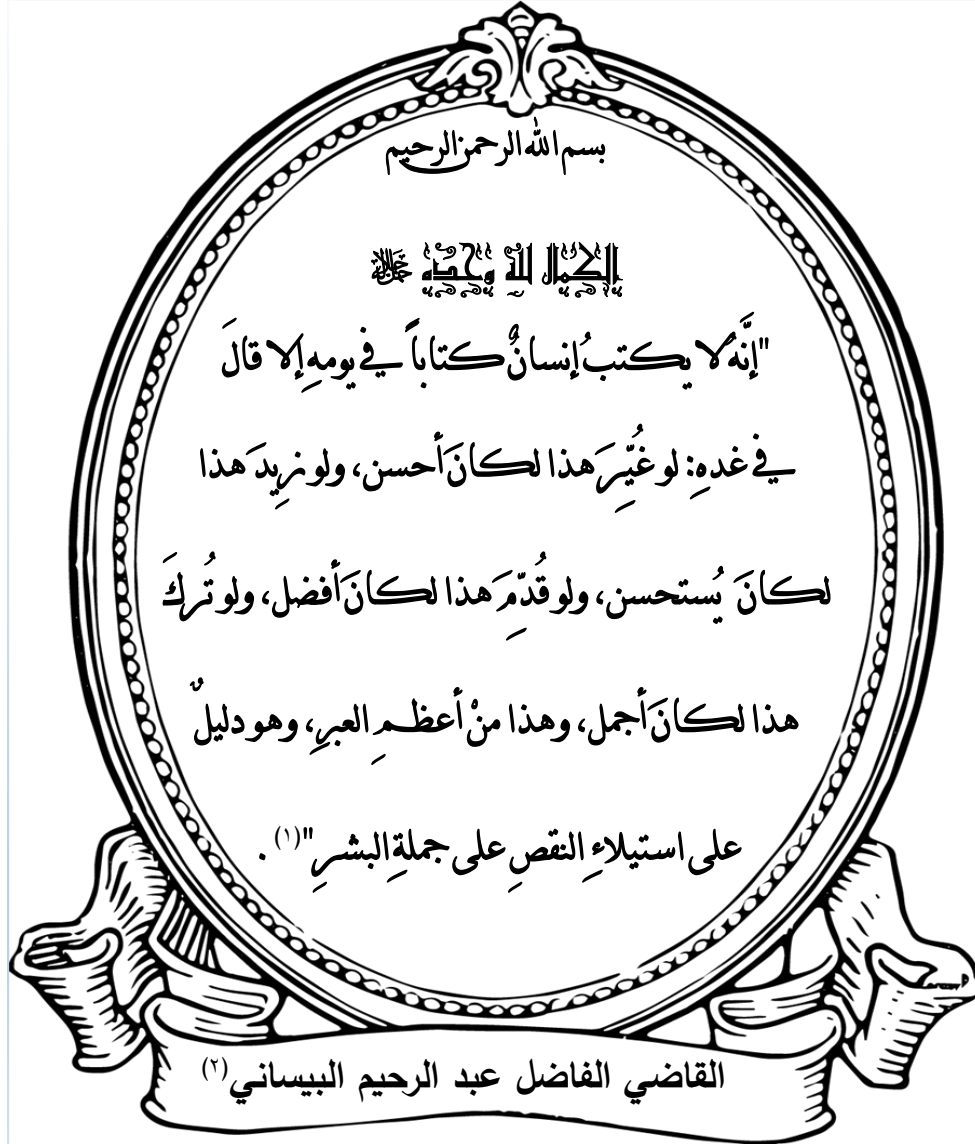 بسم الله الرحمن الرحيم
الكمال لله وحده ﷻ
"إنَّه لا يكتبُ إنسانٌ كتاباً في يومهِ إلا قالَ
في غدهِ: لو غُيِّرَ هذا لكانَ أحسن، ولو زِيدَ هذا
لكانَ يُستحسن، ولو قُدِّمَ هذا لكانَ أفضل، ولو تُركَ
هذا لكانَ أجمل، وهذا منْ أعظمِ العبرِ، وهو دليلٌ
على استيلاءِ النقصِ على جملةِ البشرِ"(١) .
القاضي الفاضل عبد الرحيم البيساني(٢)